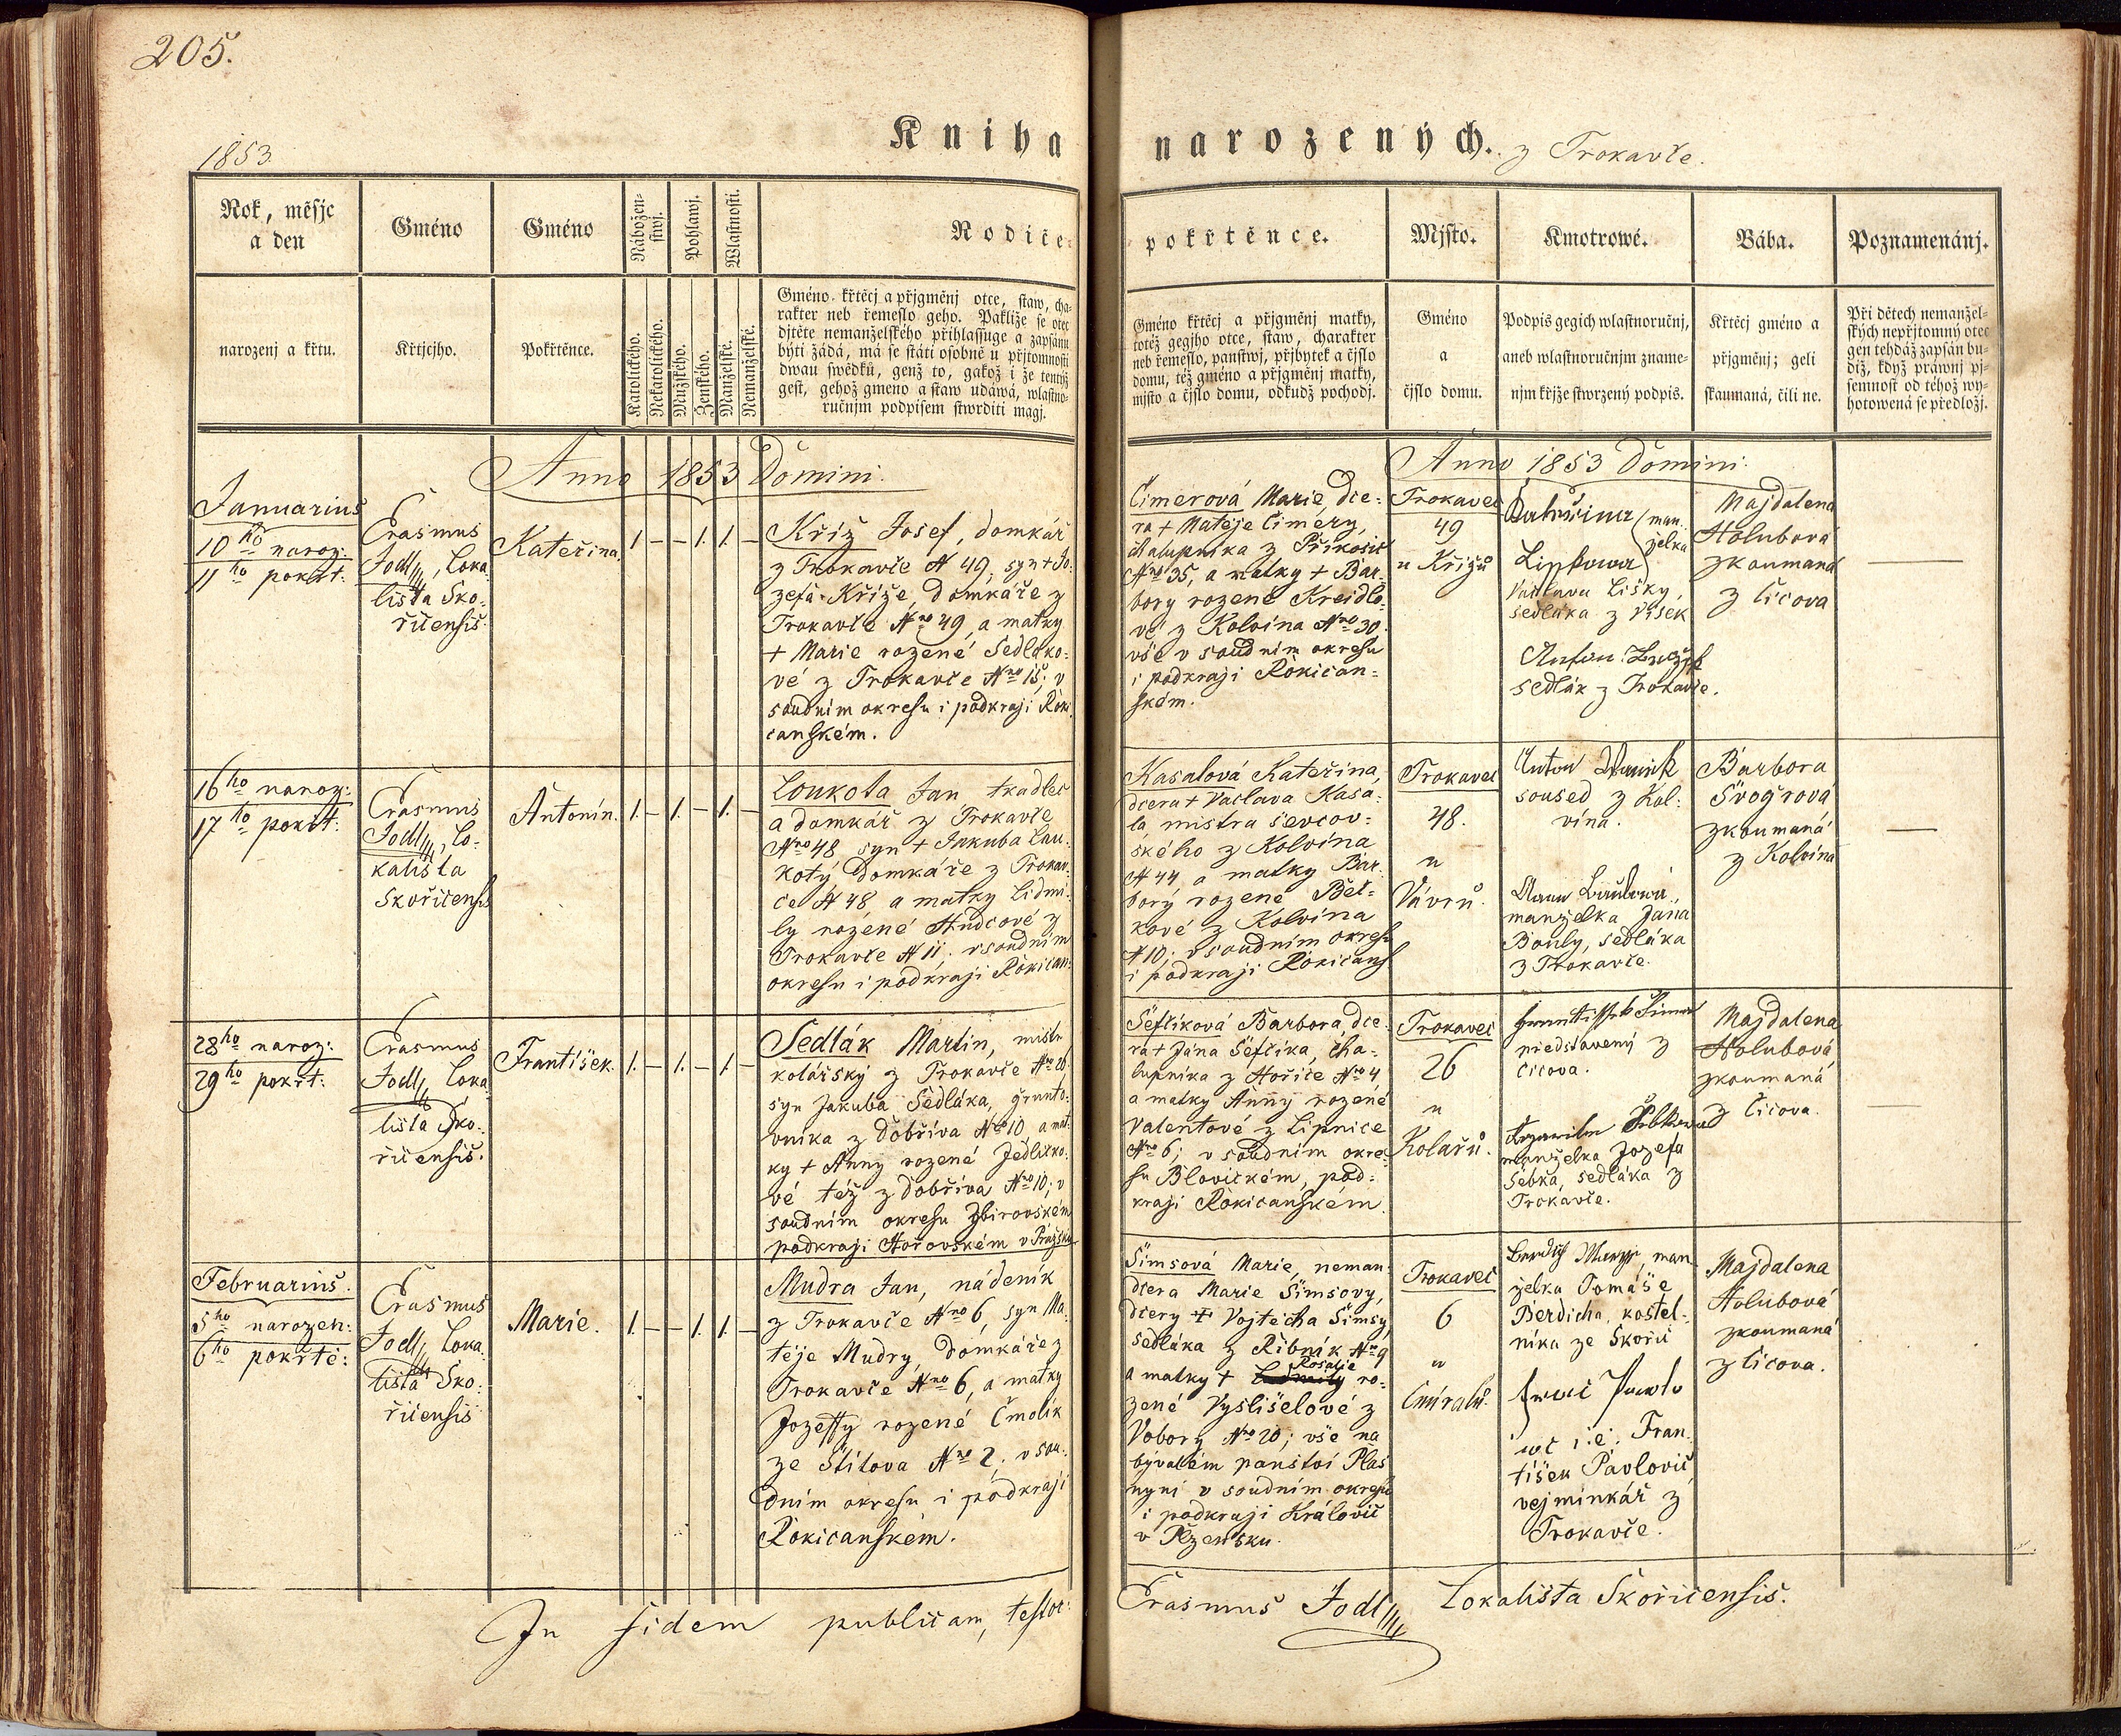 205.
1853.
Kniha
narozených. z Trokavče.
Rok, měsjc
a den
Gméno
Gméno
Nábožen-
stwj.
Pohlawj.
Wlastnosti.
Rodiče
pokřtěnce.
Mjsto.
Kmotrowé.
Bába.
Poznamenánj.
narozenj a křtu.
Křtjcjho.
Pokřtěnce.
Katolického.
Nekatolického.
Mužského.
Ženského.
Manželské.
Nemanželské.
Gméno křtěcj a přjgmenj otce, staw, cha-
rakter neb řemeslo geho. Pakliže se otec
djtěte nemanželského přihlassuge a zapsánu
býti žádá, má se státi osobně u přjtomnosti
dwau swědků, genž to, gakož i že tentýž
gest, gehož gmeno a staw udáwá, wlastno-
ručnjm podpisem stwrditi magj.
Gméno křtěcj a přjgmenj matky,
totéž gegjho otce, staw, charakter
neb řemeslo, panstwj, přjbytek a čjslo
domu, též gméno a přjgmenj matky,
mjsto a čjslo domu, odkudž pochodj.
Gméno
a
čjslo domu.
Podpis gegich wlastnoručnj,
aneb wlastnoručnjm zname-
njm křjže stwrzený podpis.
Křtěcj gméno a
přjgmenj; geli
skaumaná, čili ne.
Při dětech nemanžel-
ských nepřjtomný otec
gen tehdáž zapsán bu-
diž, když práwnj pj-
semnost od téhož wy-
hotowená se předložj.
Anno 1853 Domini.
Anno 1853 Domini.
Januarius
10ho naroz:
11ho pokřt:
Erasmus
Jodl, Loka
lista Sko:
řicensis.
Kateřina.
1. — — 1. 1. —
Kříž Josef, domkář
z Trokavče N 49, syn + Jo:
zefa Kříže, domkáře z
Trokavče Nro 49, a matky
+ Marie rozené Sedláko:
vé z Trokavče Nro 15; v
soudním okresu i podkraji Roki
canském.
Cimerová Marie, dce:
ra + Matěje Cimery,
chalupníka z Příkosic
Nro 35, a matky + Bar:
bory rozené Kreidlo:
vé z Kolvína Nro 30.
vše v soudním okresu
i podkraji Rokican:
ském.
Trokavec
49
u Křížů
man:
želka
Václava Lišky,
sedláka z Vísek
sedlák z Trokavče.
Majdalena
Holubová
zkoumaná
z Číčova
16ho naroz:
17ho pokřt:
Erasmus
Jodl, Lo:
kalista
Skořicensis
Antonín.
1. — 1. — 1. —
Loukota Jan tkadlec
a domkář z Trokavče
Nro 48 syn + Jakuba Lau:
koty domkáře z Trokav:
če N 48 a matky Lidmi:
ly rozené Hudcové z
Trokavče N 11; v soudním
okresu i podkraji Rokican:
Kasalová Kateřina,
dcera + Václava Kasa:
la, mistra ševcov:
ského z Kolvína
N 44 a matky Bar:
bory rozené Bet:
kové z Kolvína
N 10; v soudním okresu
i podkraji Rokicans
Trokavec
48.
u
Vávrů.
Anton
soused z Kol:
vína.
manželka Jana
Bouly, sedláka
z Trokavče.
Barbora
Švogrová
zkoumaná
z Kolvína
28ho naroz:
29ho pokřt:
Erasmus
Jodl, Loka
lista Sko:
řicensis.
František.
1. — 1. — 1. —
Sedlák Martin, mistr
kolářský z Trokavče Nro 26
syn Jakuba Sedláka, grunto:
vníka z Dobříva Nro 10 a mat:
ky + Anny rozené Jedličko:
vé též z Dobříva Nro 10; v
soudním okresu Zbirovském
podkraji Hořovském v Pražsku
Šefčíková Barbora, dce:
ra + Jana Šefčíka, cha:
lupníka z Hořice Nro 4
a matky Anny rozené
Valentové z Lipnice
Nro 6; v soudním okre:
su Blovickém, pod:
kraji Rokicanském.
Trokavec
26
u
Kolářů.
představený z
Číčova.
manželka Jozefa
Šebka, sedláka z
Trokavče.
Majdalena
Holubová
zkoumaná
z Číčova.
Februarius.
5ho narozen:
6ho pokřtě:
Erasmus
Jodl, Loka
lista Sko:
řicensis
Marie.
1. — — 1. 1. —
Mudra Jan, nádeník
z Trokavče Nro 6, syn Ma:
těje Mudry, domkáře z
Trokavče Nro 6, a matky
Jozeffy rozené Čmolík
ze Štítova Nro 2; v sou:
dním okresu i podkraji
Rokicanském.
Šimsová Marie, neman:
dcera Marie Šimsovy,
dcery + Vojtěcha Šimsy,
sedláka z Řibnik Nro 9
a matky + Rosalie ro:
zené Vyslišelové z
Vobory Nro 20; vše na
bývalém panství Plas
nyní v soudním okresu
i podkraji Královic
v Plzensku.
Trokavec
6
u
Čmíralů.
man
želka Tomáše
Berdicha, kostel:
níka ze Skořic
i.e. Fran:
tišek Pavlovič
vejminkář z
Trokavče.
Majdalena
Holubová
zkoumaná
z Číčova.
In fidem publicam, testor:
Erasmus Jodl Lokalista Skořicensis.